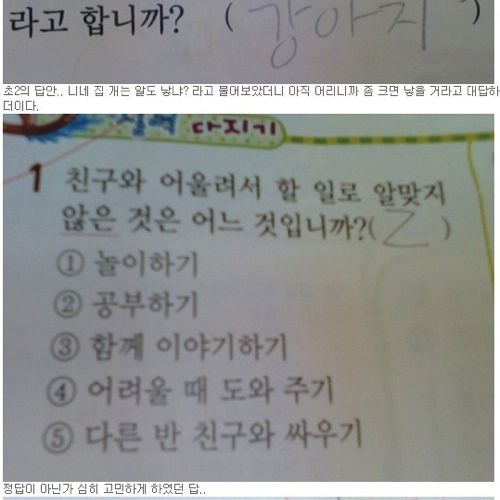 라고 합니까? ( 강아지 )
초2의 답안.. 니네 집 개는 알도 낳냐? 라고 물어보았더니 아직 어리니까 좀 크면 낳을 거라고 대답하
더이다.
다지기
1 친구와 어울려서 할 일로 알맞지
않은 것은 어느 것입니까?( 2 )
① 놀이하기
② 공부하기
③ 함께 이야기하기
④ 어려울 때 도와 주기
⑤ 다른 반 친구와 싸우기
정답이 아닌가 심히 고민하게 하였던 답..